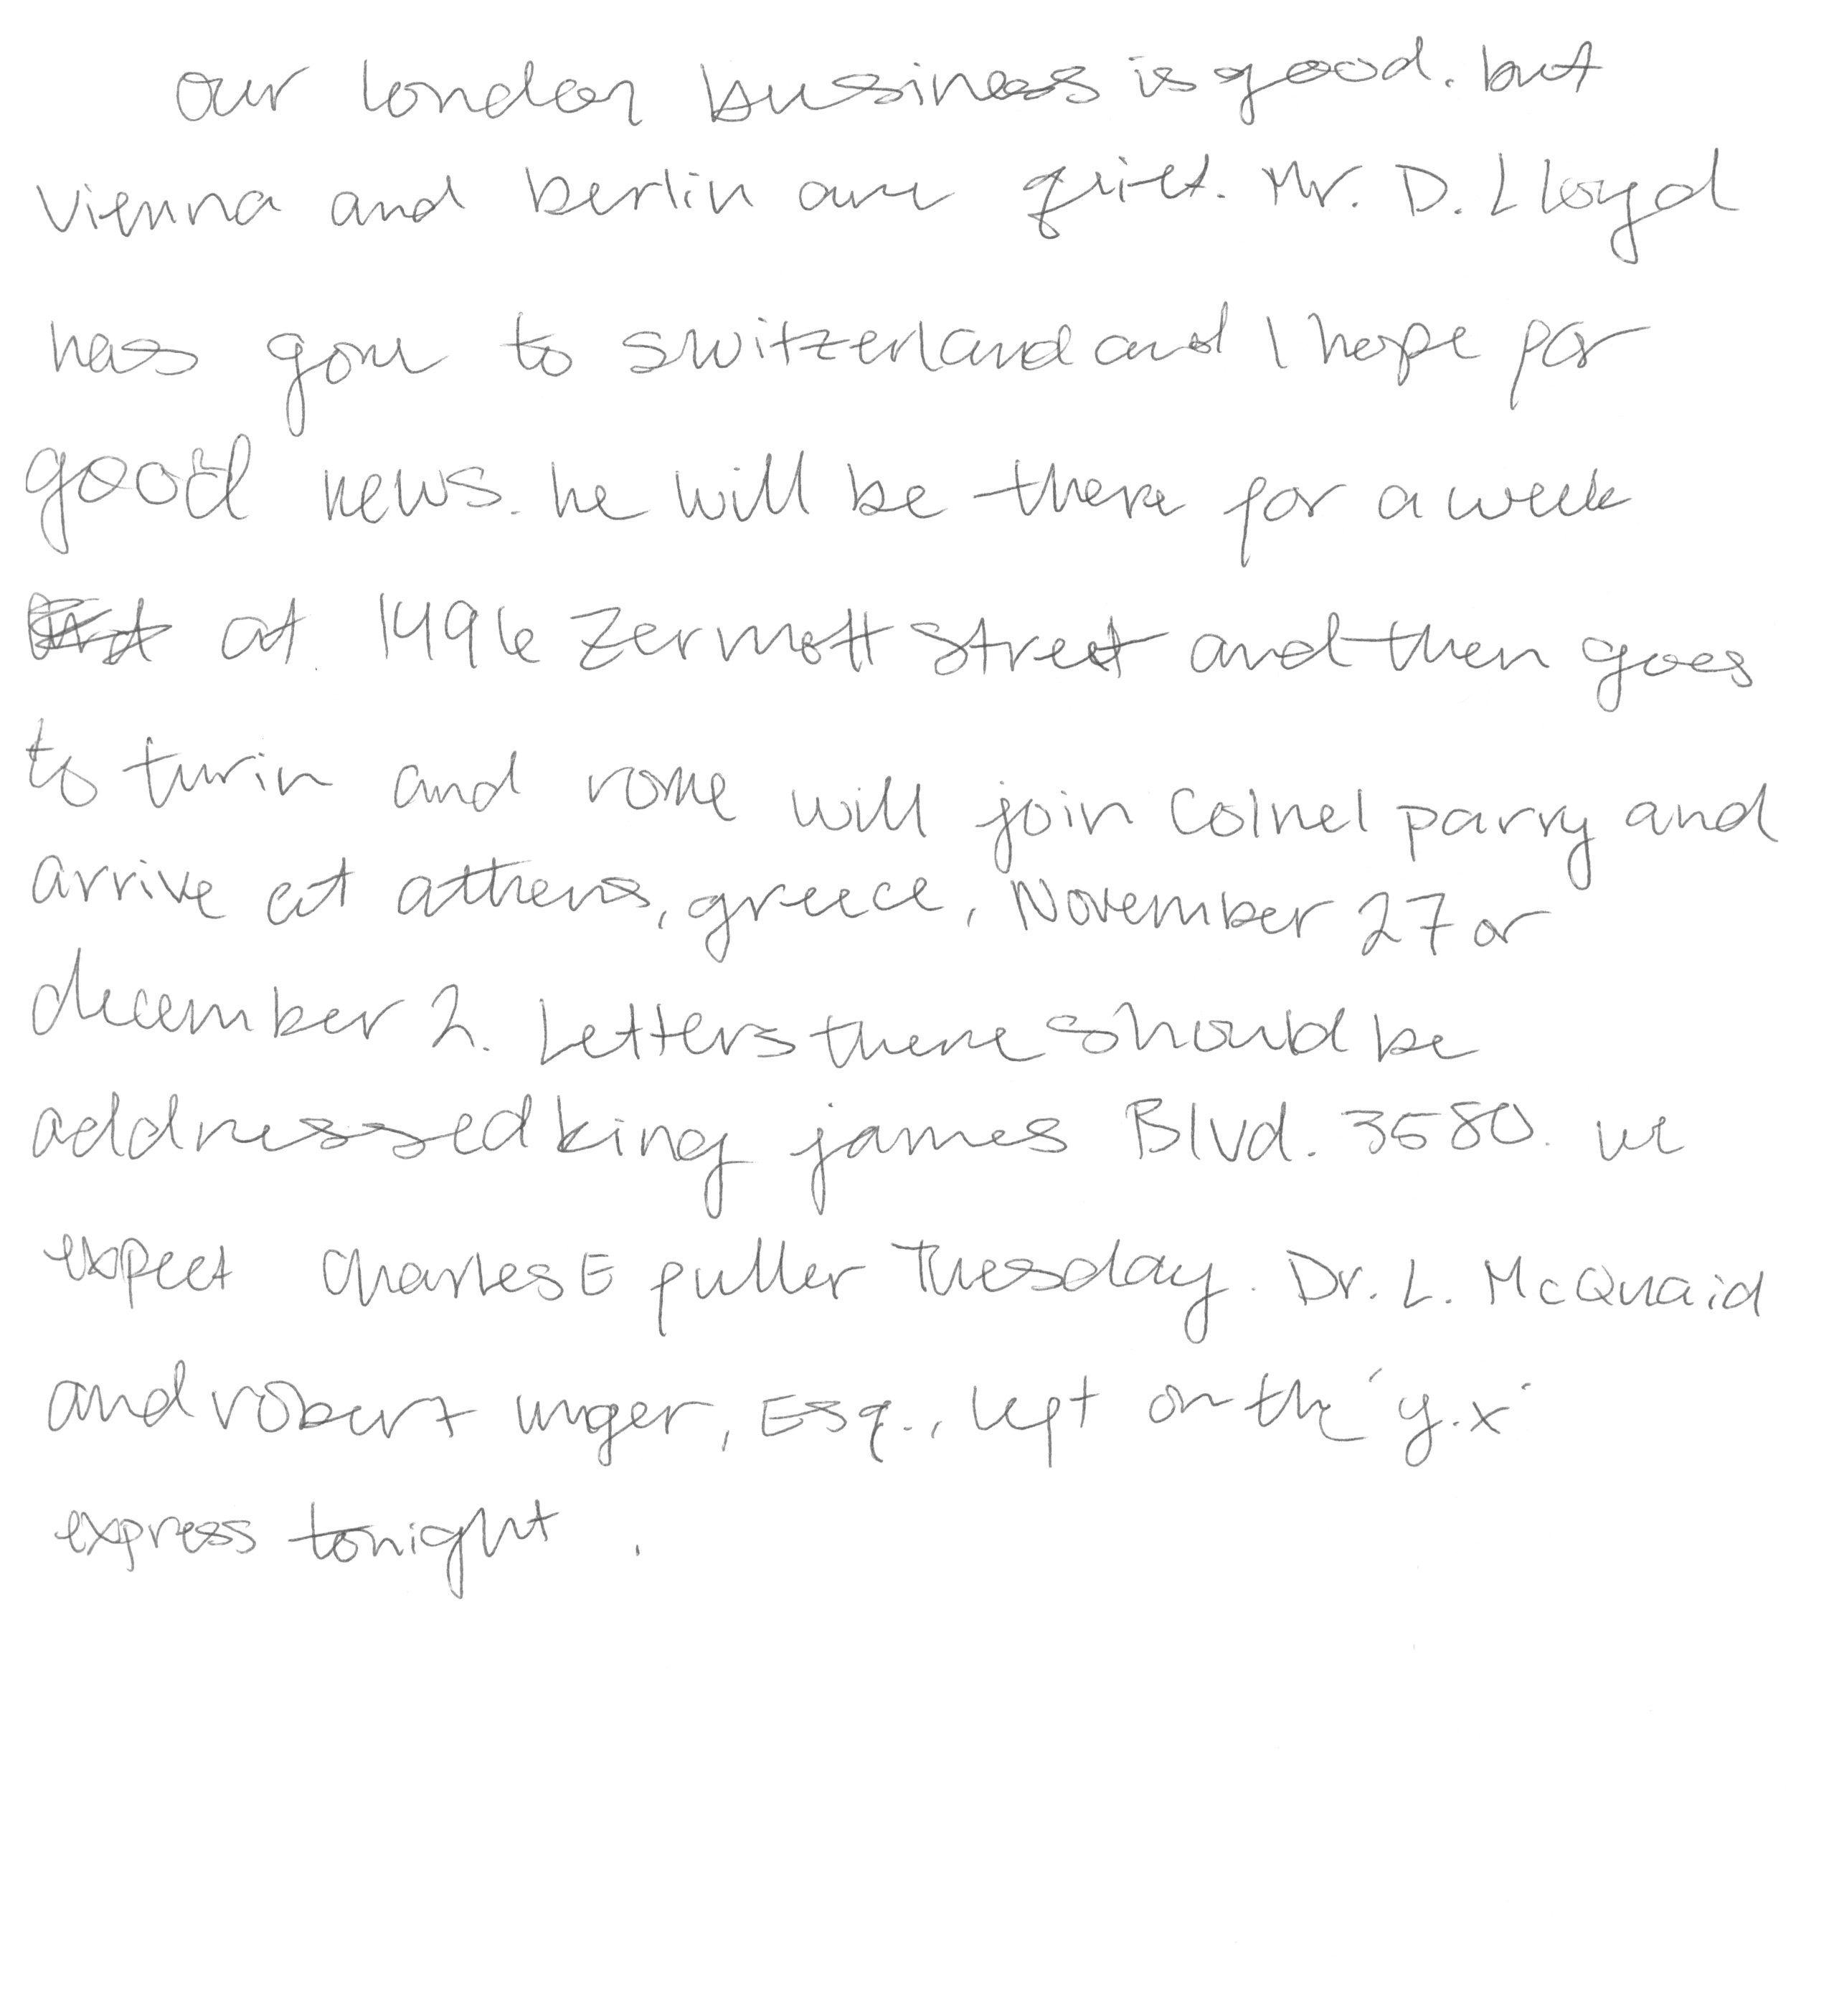 our london business is good. but
vienna and berlin are quiet. Mr. D. Lloyd
has gone to switzerland and I hope for
good news. he will be there for a week
at 1496 Zermott street and then goes
to turin and rome will join Colnel parry and
arrive at athens, greece, November 27 or
december 2. Letters there should be
addressed king james Blvd. 3580. we
expect Charles E fuller Tuesday. Dr. L. McQuaid
and robert unger, Esq., left on the 'y.x'
express tonight.